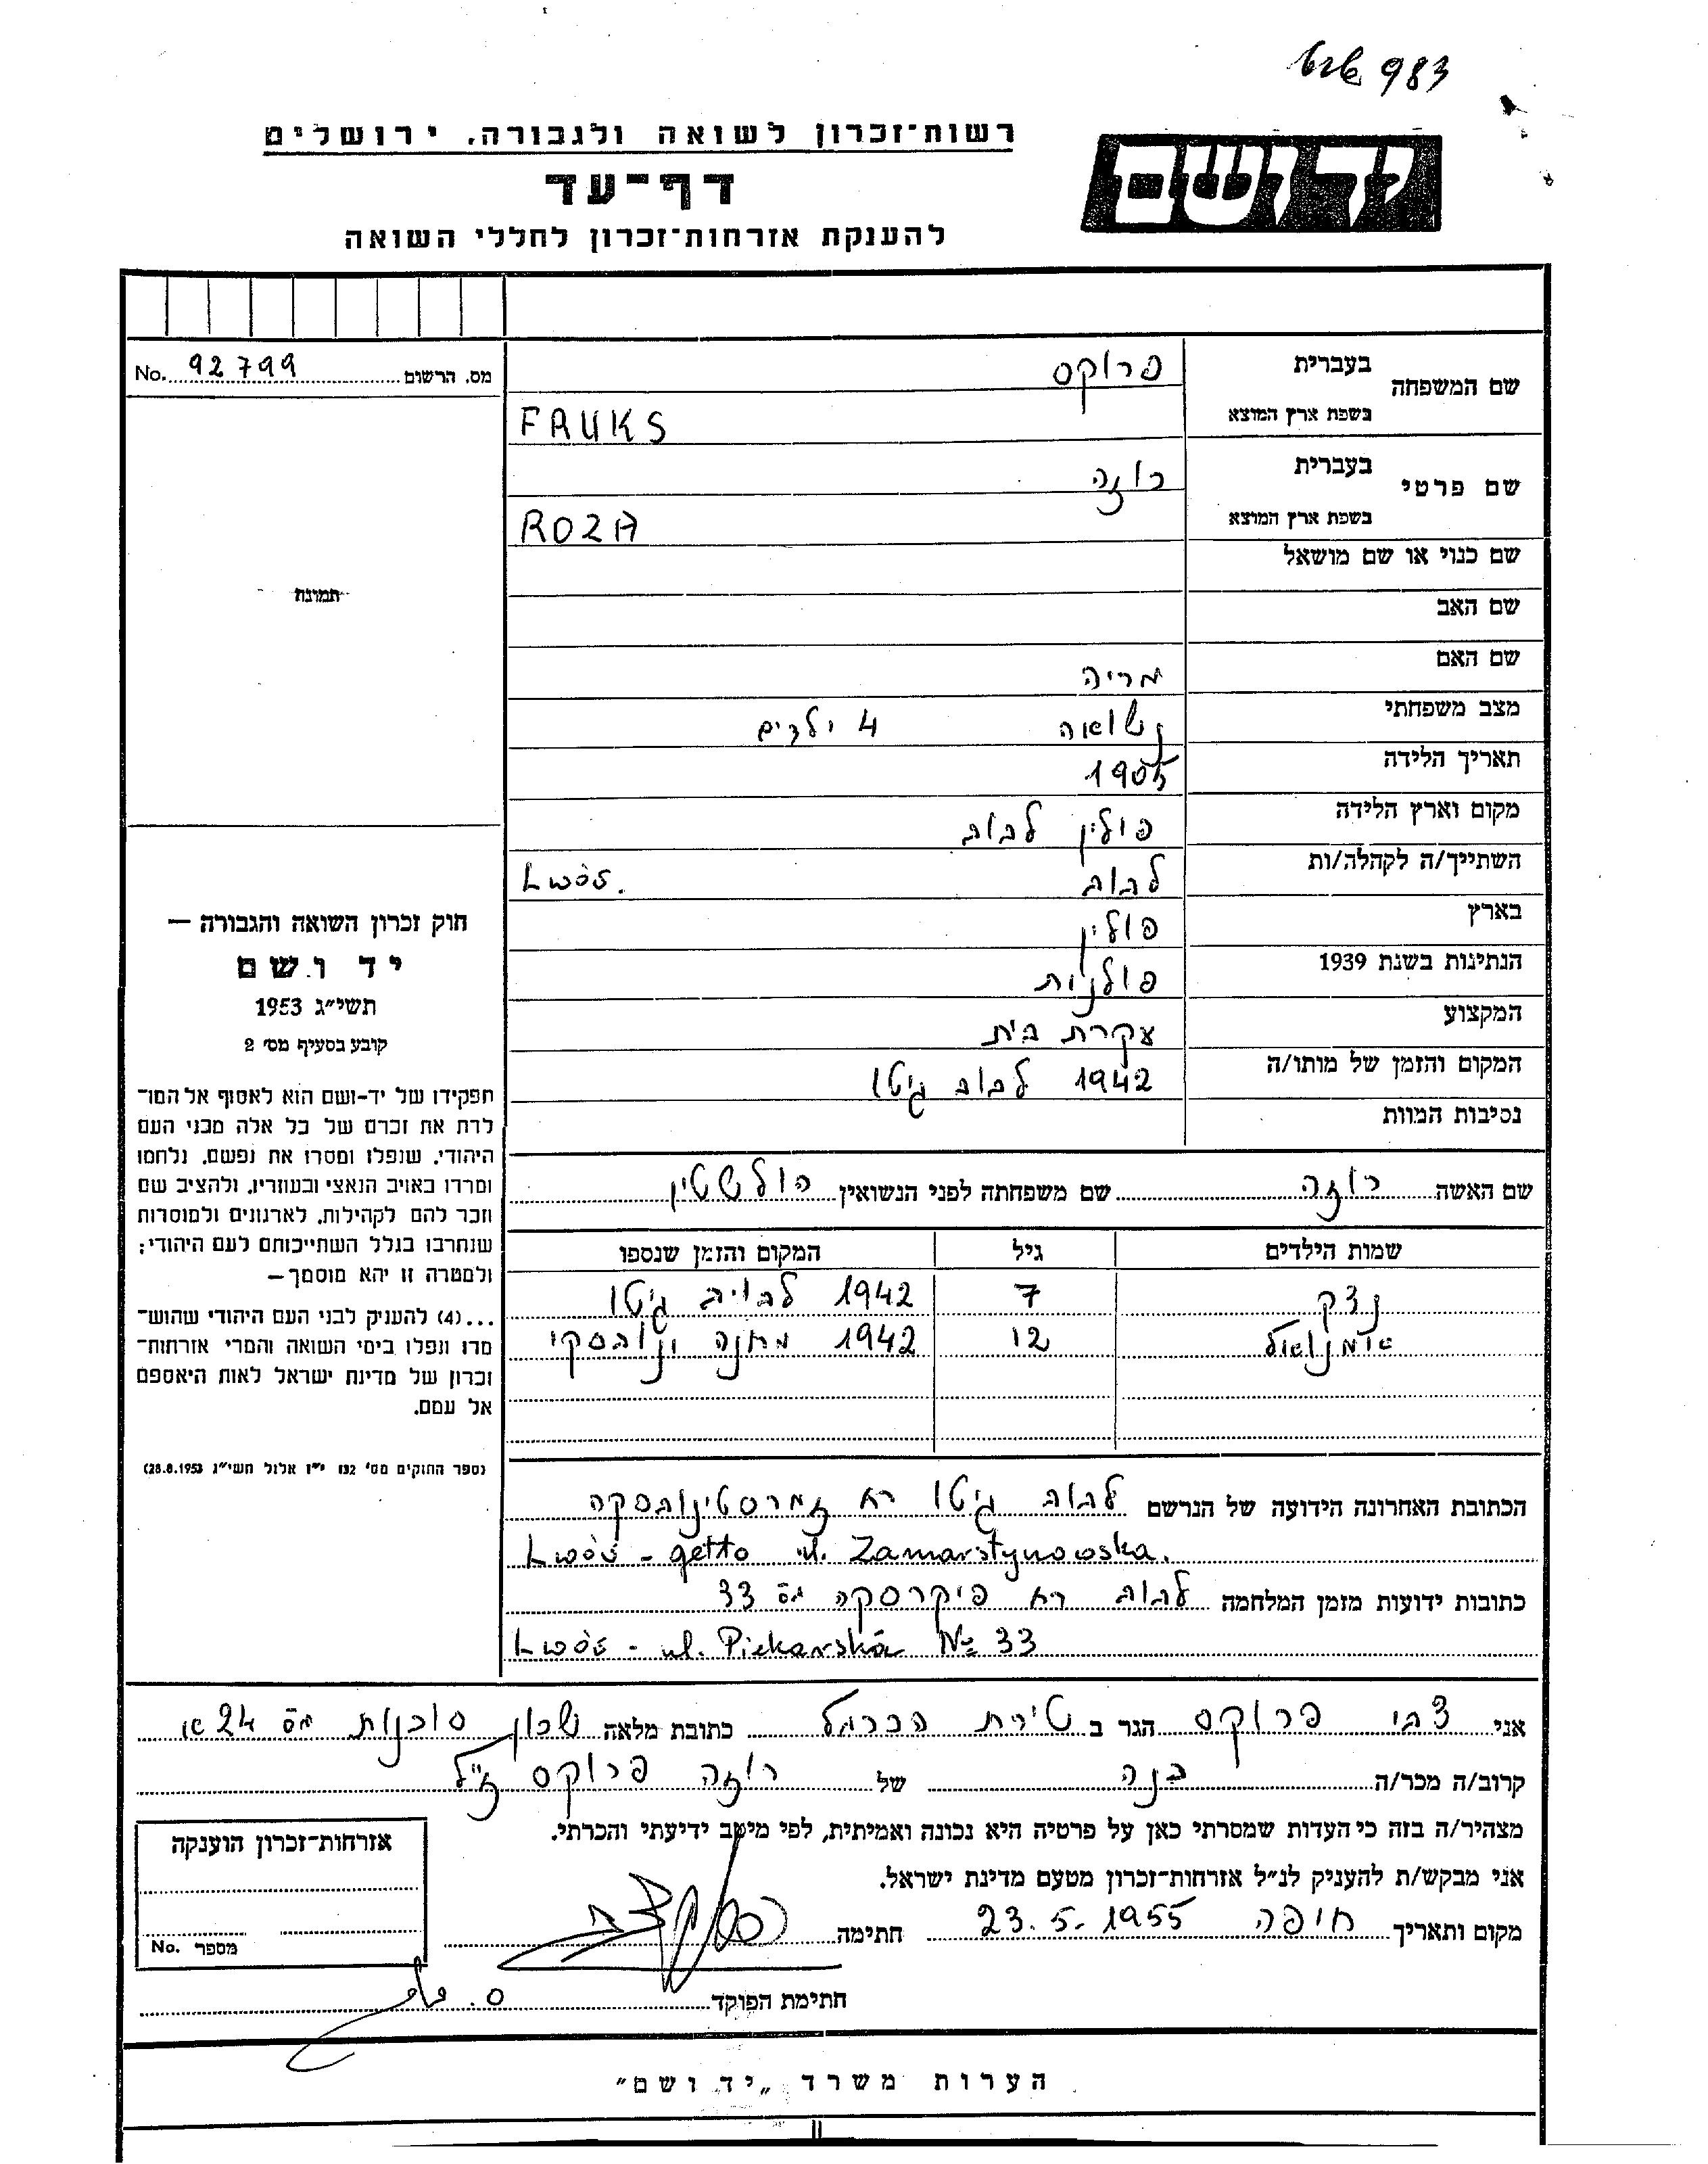 983
רשות־זכרון לשואה ולגבורה. ירושלים
יד ושם
דף־עד
להענקת אזרחות־זכרון לחללי השואה
מס. הרשום 92799 No.
שם המשפחה
בעברית פרוקס
בשפת ארץ המוצא FRUKS
שם פרטי
בעברית רוזה
בשפת ארץ המוצא ROZA
שם כנוי או שם מושאל
שם האב
שם האם מריה
מצב משפחתי נשואה 4 ילדים
תאריך הלידה 1905
מקום וארץ הלידה פולין לבוב
השתייך/ה לקהלה/ות לבוב Lwów.
בארץ פולין
הנתינות בשנת 1939 פולנית
המקצוע עקרת בית
המקום והזמן של מותו/ה 1942 לבוב גיטו
נסיבות המוות
שם האשה רוזה שם משפחתה לפני הנשואין הולשטין
שמות הילדים גיל המקום והזמן שנספו
נצק 7 1942 לבויב גיטו
עימנואל 12 1942 מחנה ינובסקי
הכתובת האחרונה הידועה של הנרשם לבוב גיטו רח זמרסטינובסקה
Lwów - getto ul. Zamarstynowska.
כתובות ידועות מזמן המלחמה לבוב רח פיקרסקה מס 33
Lwów - ul. Piekarska № 33
תמונה
חוק זכרון השואה והגבורה —
יד ושם
תשי״ג 1953
קובע בסעיף מס׳ 2
תפקידו של יד-ושם הוא לאסוף אל המו־
לדת את זכרם של כל אלה מבני העם
היהודי, שנפלו ומסרו את נפשם, נלחמו
ומרדו באויב הנאצי ובעוזריו, ולהציב שם
וזכר להם לקהילות, לארגונים ולמוסדות
שנחרבו בגלל השתייכותם לעם היהודי;
ולמטרה זו יהא מוסמך—
...(4) להעניק לבני העם היהודי שהוש־
מדו ונפלו בימי השואה והמרי אזרחות־
זכרון של מדינת ישראל לאות היאספם
אל עמם.
(ספר החוקים מס׳ 132 י״ז אלול תשי״ג 28.8.1953)
אני צבי פרוקס הגר ב טירת הכרמל כתובת מלאה שכון סוכנות מס 24
קרוב/ה מכר/ה בנה של רוזה פרוקס ז״ל
מצהיר/ה בזה כי העדות שמסרתי כאן על פרטיה היא נכונה ואמיתית, לפי מיטב ידיעתי והכרתי.
אני מבקש/ת להעניק לנ״ל אזרחות־זכרון מטעם מדינת ישראל.
מקום ותאריך חיפה 23.5.1955 חתימה
חתימת הפוקד
אזרחות־זכרון הוענקה
מספר No.
הערות משרד „יד ושם״